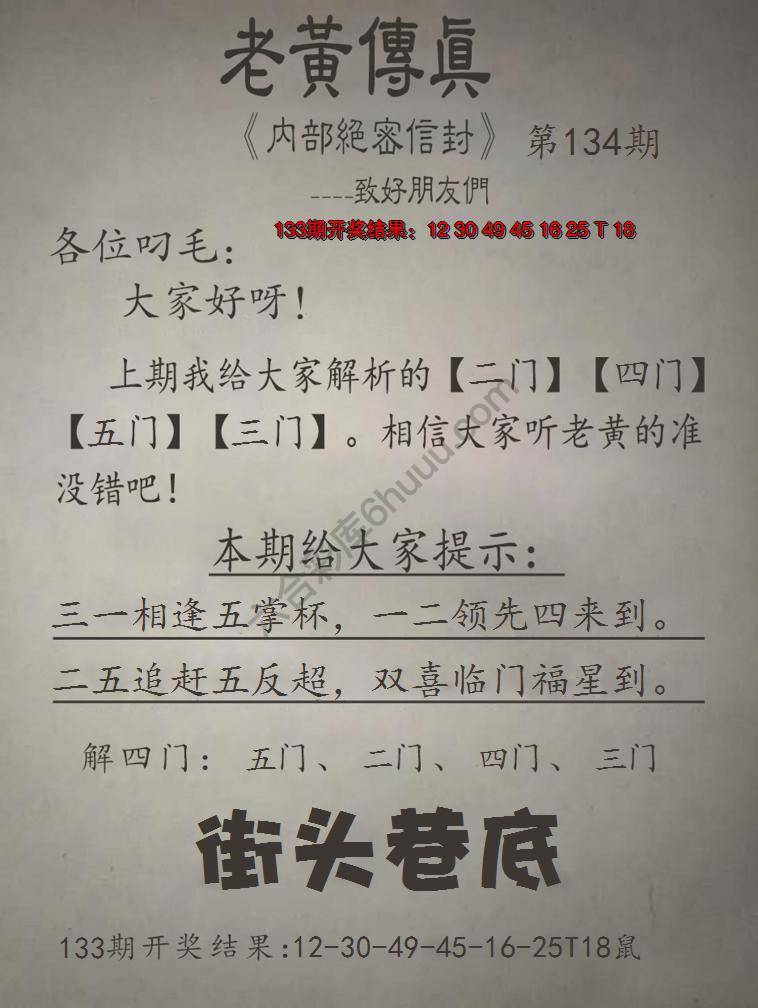 老黃傳眞
《内部絕密信封》 第134期
----致好朋友們
133期开奖结果：12 30 49 45 16 25 T 18
各位叼毛：
大家好呀！
上期我给大家解析的【二门】【四门】
【五门】【三门】。相信大家听老黄的准
没错吧！
六合彩库6huuu.com
本期给大家提示：
三一相逢五掌杯，一二领先四来到。
二五追赶五反超，双喜临门福星到。
解四门： 五门、 二门、 四门、 三门
街头巷底
133期开奖结果:12-30-49-45-16-25T18鼠